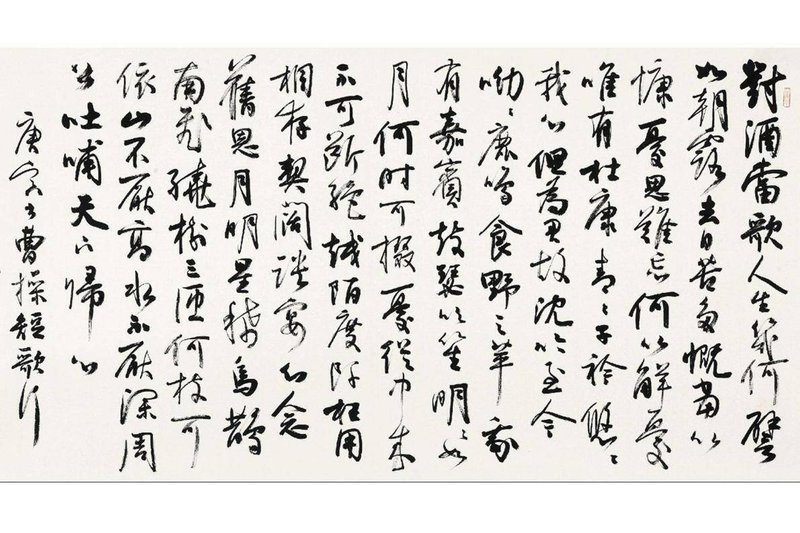 對酒當歌人生幾何譬
如朝露去日苦多慨當以
慷憂思難忘何以解憂
唯有杜康青々子衿悠々
我心但為君故沈吟至今
呦々鹿鳴食野之苹我
有嘉賓鼓瑟吹笙明々如
月何时可掇憂從中來
不可斷絕越陌度阡枉用
相存契闊談宴心念
舊恩月明星稀烏鵲
南飛繞樹三匝何枝可
依山不厭高水不厭深周
公吐哺天下歸心
庚寅書曹操短歌行